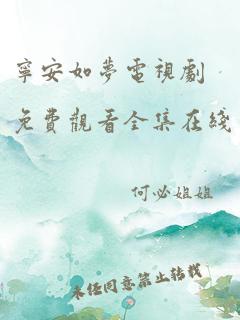 寧安如夢電視劇
免費觀看全集在綫
何必姐姐
未經同意禁止轉載